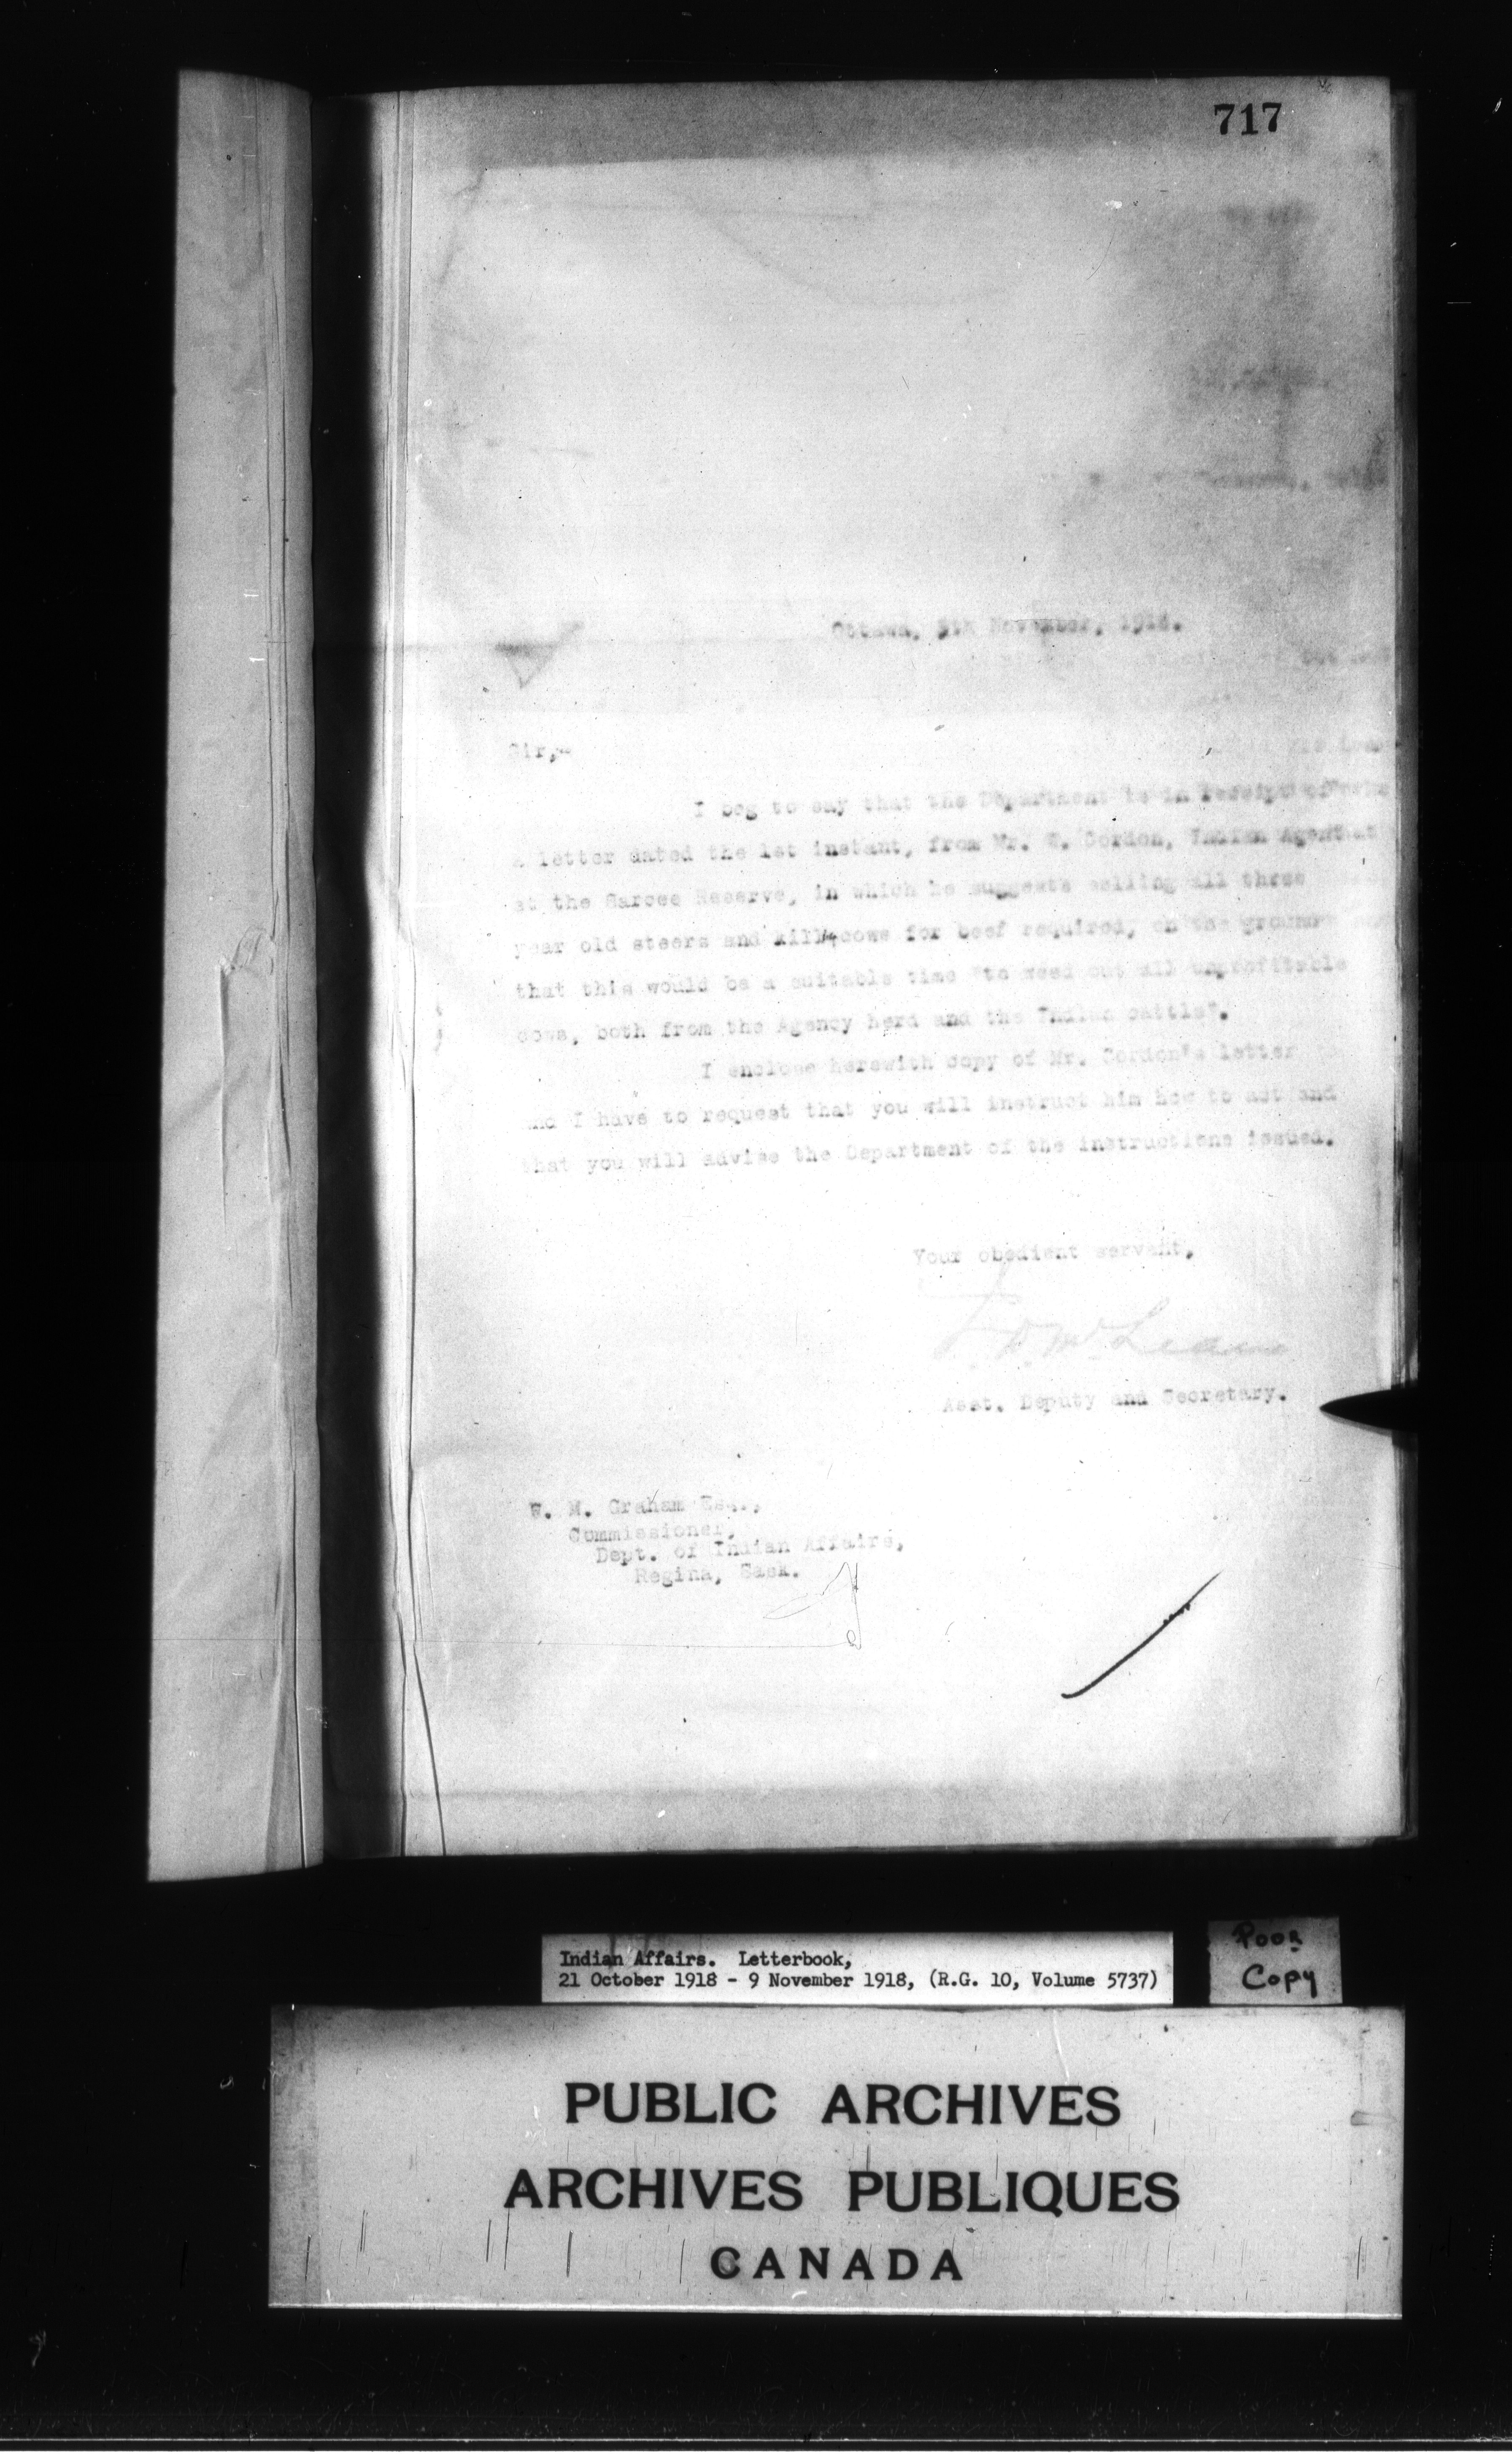 717
Ottawa, 5th November, 1918.
Sir,-
I beg to say that the Department is in receipt of
a letter dated the 1st instant, from Mr. W. Gordon, Indian Agent
at the Sarcee Reserve, in which he suggests selling all three
year old steers and killing cows for beef required, on the ground
that this would be a suitable time "to weed out all unprofitable
cows, both from the Agency herd and the Indian cattle".
I enclose herewith copy of Mr. Gordon's letter
and I have to request that you will instruct him how to act and
that you will advise the Department of the instructions issued.
Your obedient servant,
J. D. McLean
Asst. Deputy and Secretary.
W. M. Graham Esq.,
Commissioner,
Dept. of Indian Affairs,
Regina, Sask.
Indian Affairs. Letterbook,
21 October 1918 - 9 November 1918, (R.G. 10, Volume 5737)
Poor
Copy
PUBLIC ARCHIVES
ARCHIVES PUBLIQUES
CANADA